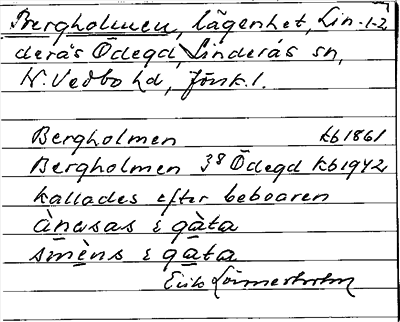 Bergholmen, lägenhet, Lin- 1-2
derås Ödegd, Linderås sn,
N. Vedbo hd, Jönk. l.
Bergholmen kb 1861
Bergholmen 38 Ödegd kb 1942
kallades efter beboaren
ànasas s gàta
smèns s gàta
Erik